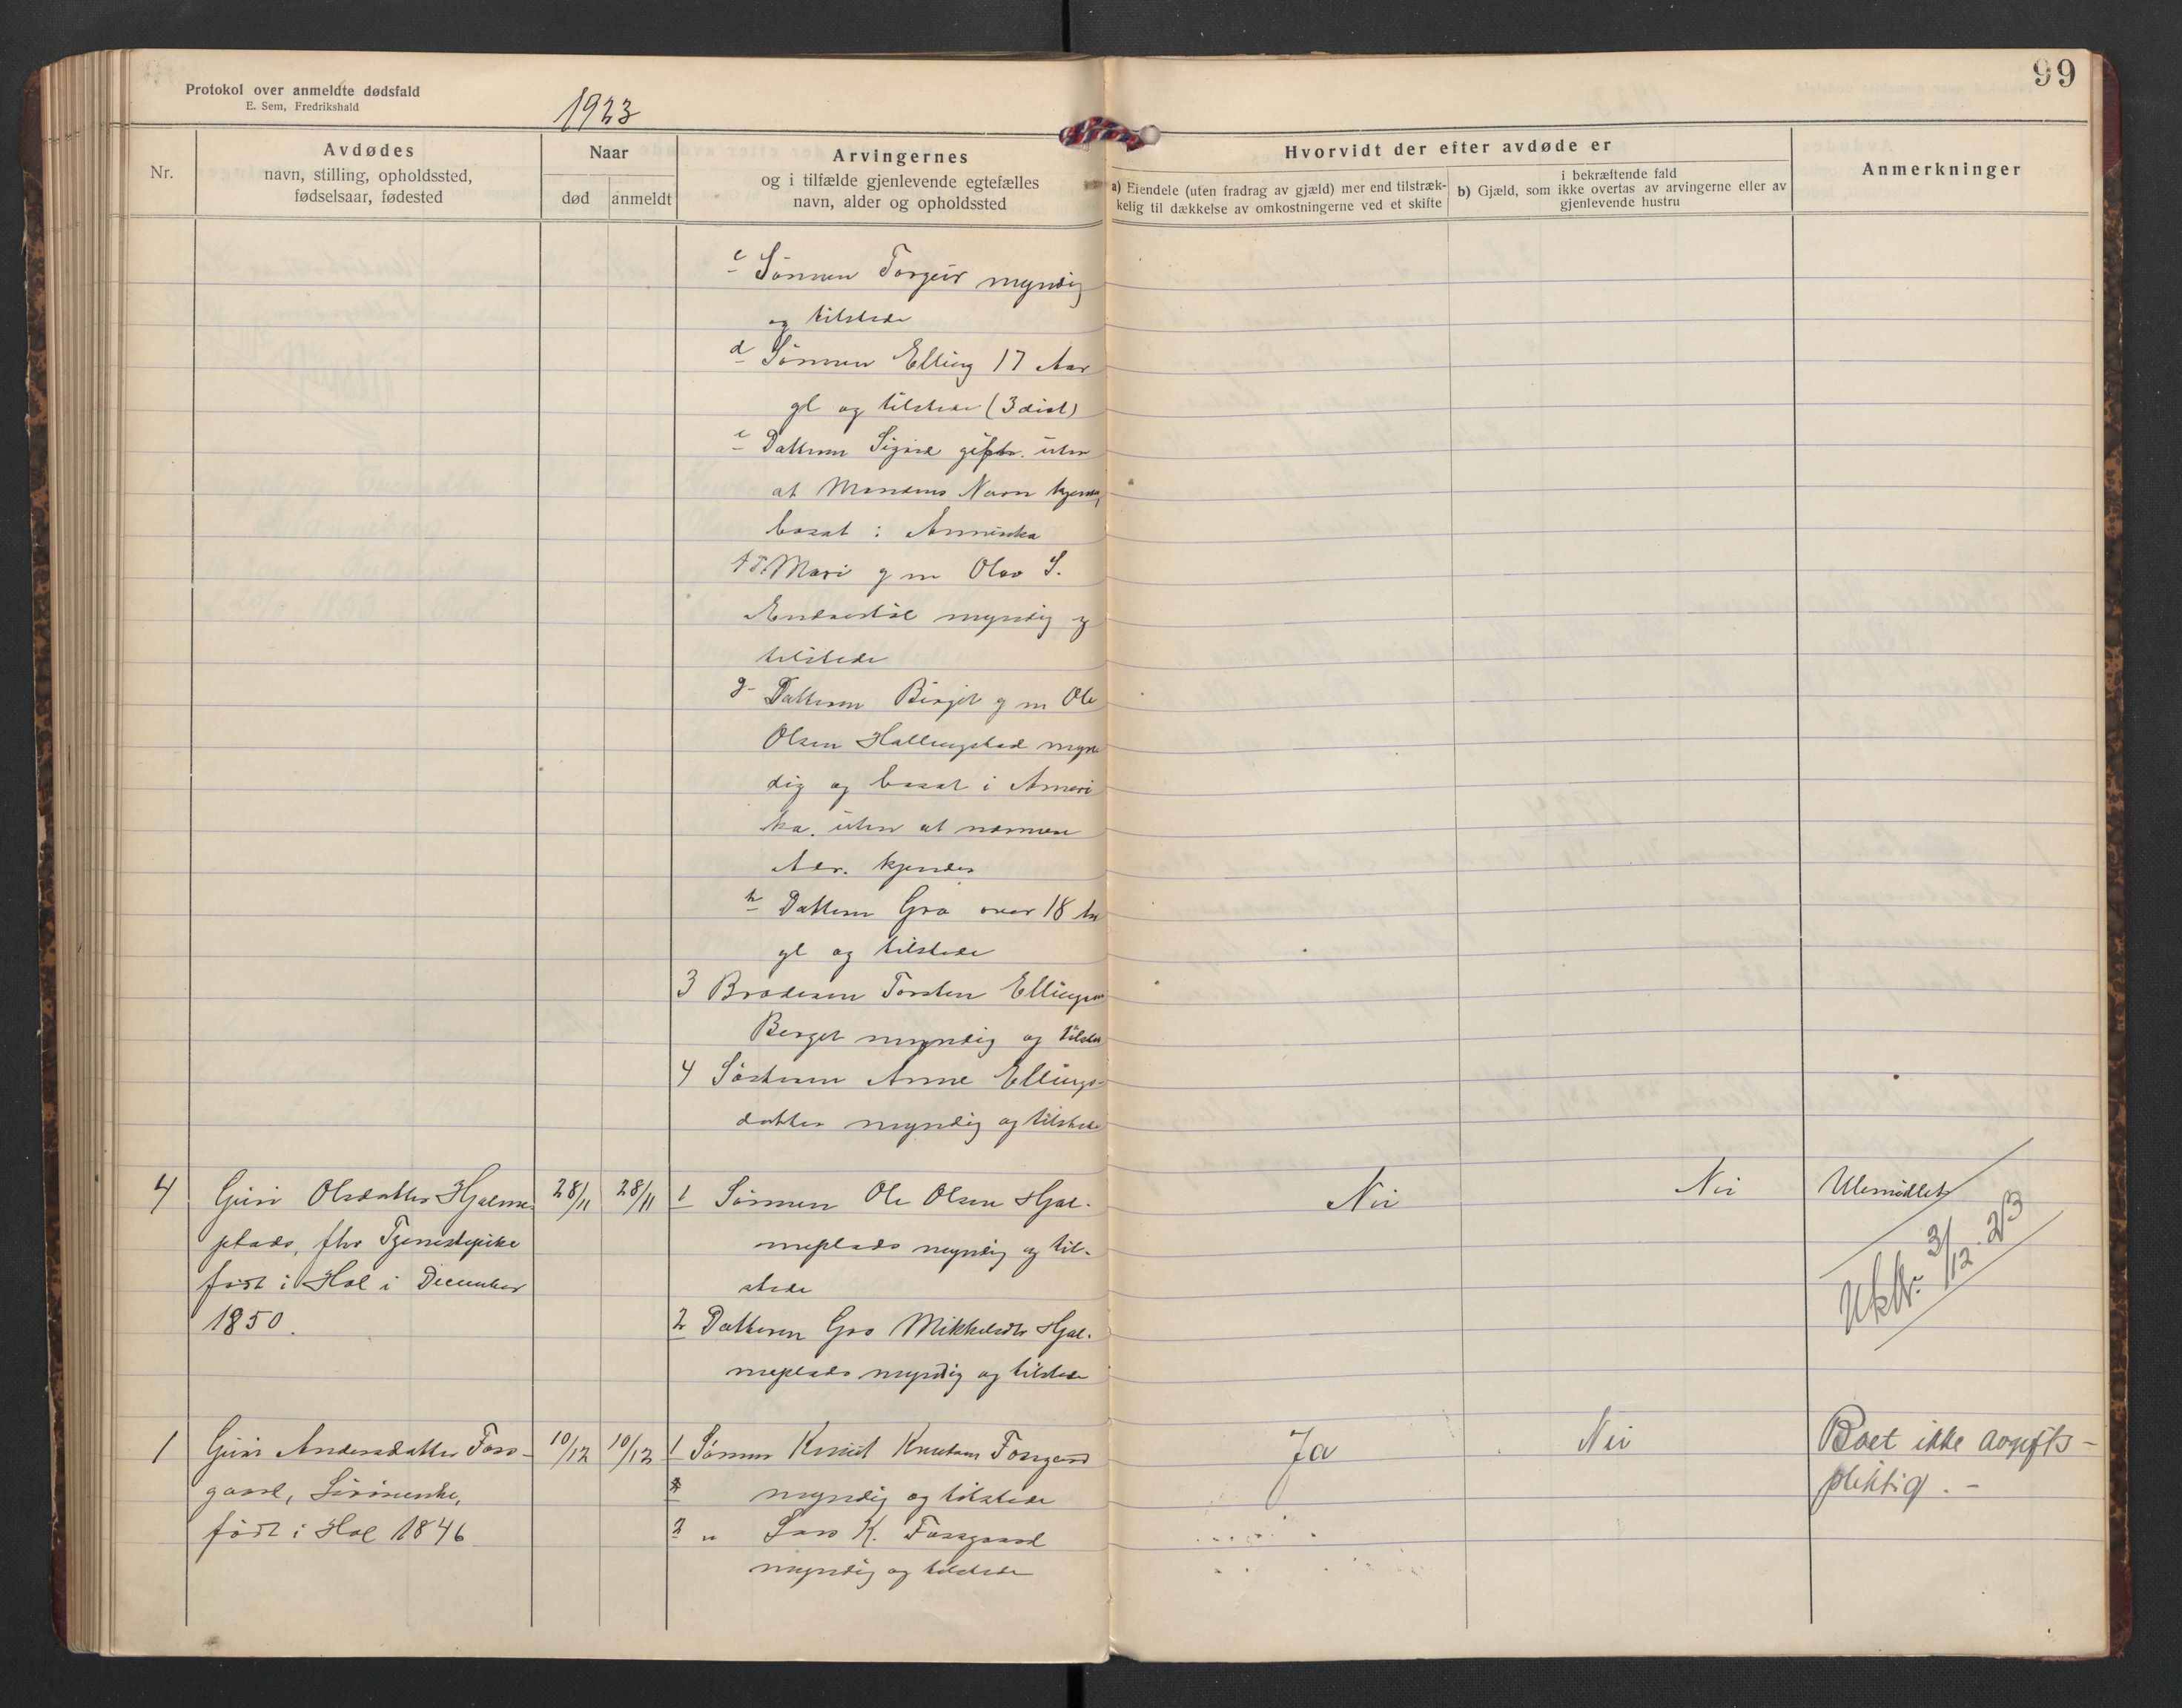 Protokol over anmeldte dødsfald
E. Sem, Fredrikshald
1923
99
Nr.
Avdødes
navn, stilling, opholdssted,
fødselsaar, fødested
Naar
død
anmeldt
Arvingernes
og i tilfælde gjenlevende egtefælles
navn, alder og opholdssted
Hvorvidt der efter avdøde er
a) Eiendele (uten fradrag av gjæld) mer end tilstræk-
kelig til dækkelse av omkostningerne ved et skifte
i bekræftende fald
b) Gjæld, som ikke overtas av arvingerne eller av
gjenlevende hustru
Anmerkninger
c Sønnen Torgeir myndig
og tilstede
d Sønnen Elling 17 Aar
gl og tilstede (3 dist)
e Datteren Sigrid gift. uten
at Mandens Navn kjendes,
bosat i Amerika
f D. Mari g m Olav S.
myndig og
tilstede
g Datteren Birgit g m Ole
Olsen Hallingstad myn
dig og bosat i Ameri
ka. uten at nærmere
Adr. kjendes
h Datteren Gro over 18 Aar
gl og tilstede
3 Broderen Torsten Ellingsen
Berget myndig og tilstede
4 Søsteren Anne Ellings-
datter myndig og tilstede
4 Guri Olsdatter Hjelme
plads, fhv Tjenestepike
født i Hol i December
1850.
28/11 28/11
1 Sønnen Ole Olsen Hjel-
meplads myndig og til-
stede
2 Datteren Gro Mikkelsdtr Hjel-
meplads myndig og tilstede
Nei
Nei
Uformuet
3/12 23
1 Guri Andersdatter Foss-
gaard,
født i Hol 1846
10/12 10/12
1 Sønnen Knut Knutsen Fossgard
myndig og tilstede
2 " Lars K. Fossgaard
myndig og tilstede
Ja
Nei
Boet ikke avgifts-
pliktig. -